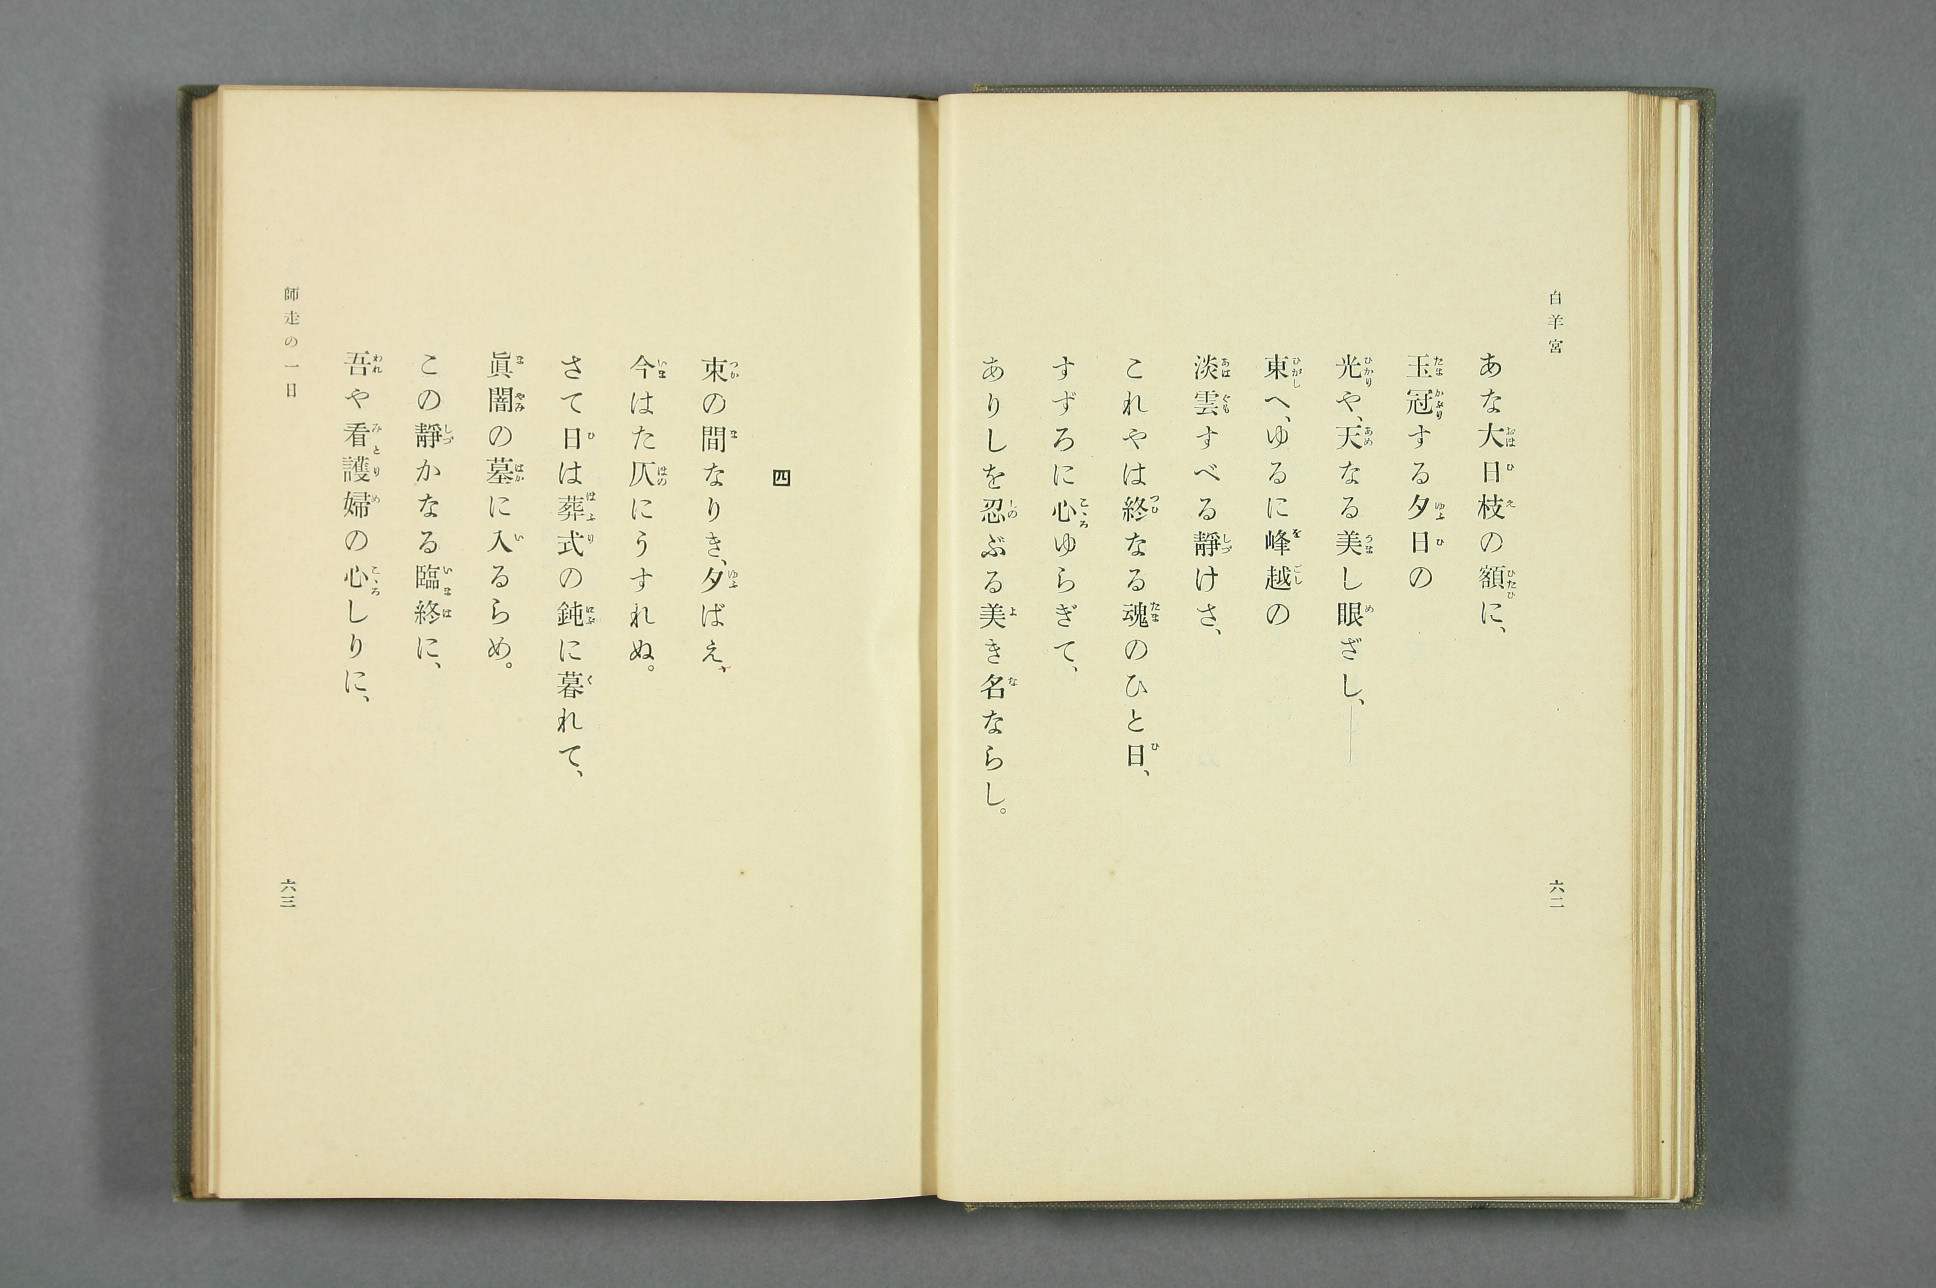 白羊宮
あな大日枝の額に、
玉冠する夕日の
光や、天なる美し眼ざし、――
東へ、ゆるに峰越の
淡雲すべる靜けさ、
これやは終なる魂のひと日、
すずろに心ゆらぎて、
ありしを忍ぶる美き名ならし。
六二
四
束の間なりき、夕ばえ、
今はた仄にうすれぬ。
さて日は葬式の鈍に暮れて、
眞闇の墓に入るらめ。
この靜かなる臨終に、
吾や看護婦の心しりに、
師走の一日
六三